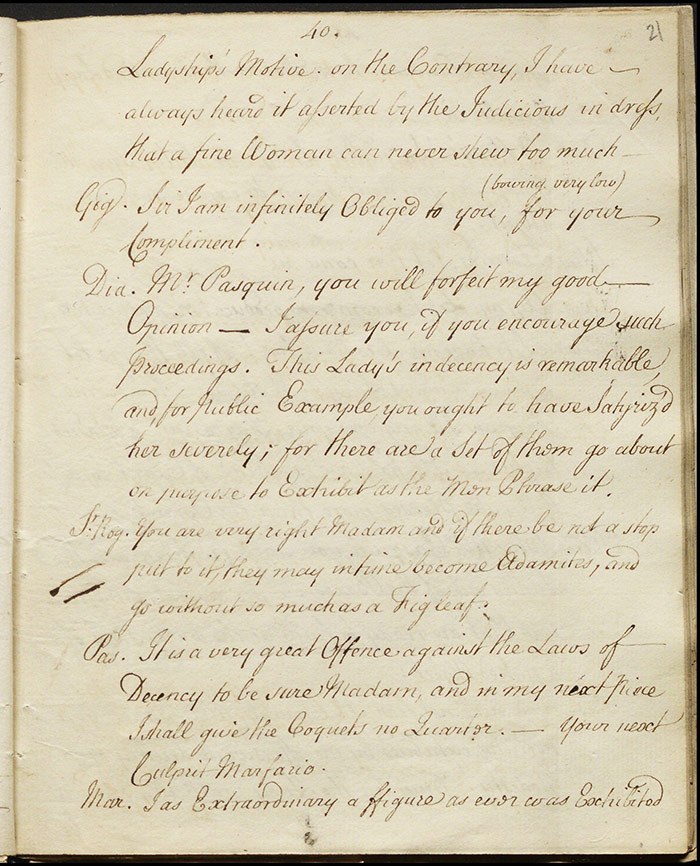 40.
21
Ladyship's Motive. on the Contrary, I have —
always heard it asserted by the Judicious in dress,
that a fine Woman can never shew too much —
(bowing very low)
Gig. Sir I am infinitely Obliged to you, for your —
Compliment.
Dia. Mr. Pasquin, you will forfeit my good —
Opinion — I assure you, if you encourage such
proceedings. This Lady's indecency is remarkable,
and, for Public Example, you ought to have Satyriz'd
her severely; for there are a Set of them go about
on purpose to Exhibit as the Men Phrase it.
Sr. Rog. You are very right Madam and if there be not a stop
put to it, they may in time become Adamites, and
go without so much as a Figleaf.
Pas. It is a very great Offence against the Laws of —
Decency to be sure Madam, and in my next Piece
I shall give the Coquets no Quarter. — Your next
Culprit Marforio.
Mar. I as Extraordinary a ffigure as ever was Exhibited